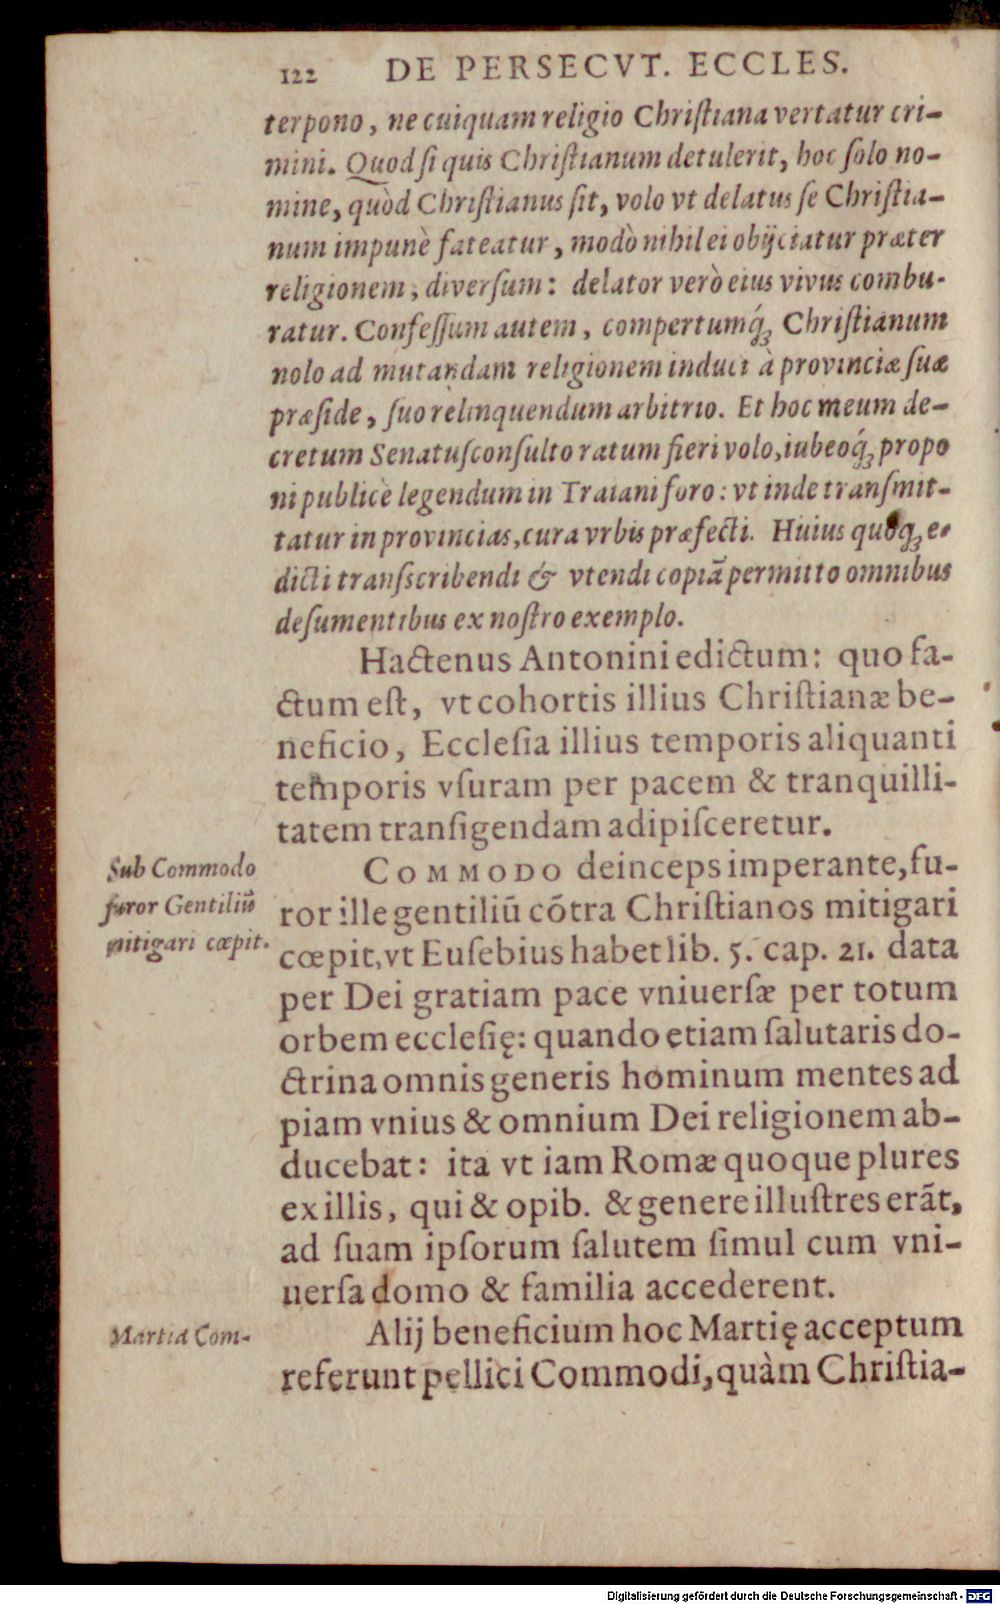 122 DE PERSECVT. ECCLES.
terpono, ne cuiquam religio Chriſtiana vertatur cri-
mini. Quod ſi quis Chriſtianum detulerit, hoc ſolo no-
mine, quòd Chriſtianus ſit, volo vt delatus ſe Chriſtia-
num impunè fateatur, modò nihil ei obijciatur præter
religionem, diverſum: delator verò eius vivus combu-
ratur. Confeſſum autem, compertumq́ꝫ Chriſtianum
nolo ad mutandam religionem induci à provinciæ ſuæ
præſide, ſuo relinquendum arbitrio. Et hoc meum de-
cretum Senatuſconſulto ratum fieri volo, iubeoq́ꝫ propo
ni publicè legendum in Traiani foro: vt inde tranſmit-
tatur in provincias, cura vrbis præfecti. Huius quoqꝫ e-
dicti tranſscribendi & vtendi copiã permitto omnibus
deſumentibus ex noſtro exemplo.
Hactenus Antonini edictum: quo fa-
ctum eſt, vt cohortis illius Chriſtianæ be-
neficio, Eccleſia illius temporis aliquanti
temporis vſuram per pacem & tranquilli-
tatem tranſigendam adipiſceretur.
Sub Commodo
furor Gentiliũ
mitigari cœpit.
COMMODO deinceps imperante, fu-
ror ille gentiliũ cõtra Chriſtianos mitigari
cœpit, vt Euſebius habet lib. 5. cap. 21. data
per Dei gratiam pace vniuerſæ per totum
orbem eccleſię: quando etiam ſalutaris do-
ctrina omnis generis hominum mentes ad
piam vnius & omnium Dei religionem ab-
ducebat: ita vt iam Romæ quoque plures
ex illis, qui & opib. & genere illuſtres erãt,
ad ſuam ipſorum ſalutem ſimul cum vni-
uerſa domo & familia accederent.
Martia Com-
Alij beneficium hoc Martię acceptum
referunt pellici Commodi, quàm Chriſtia-
Digitalisierung gefördert durch die Deutsche Forschungsgemeinschaft - DFG